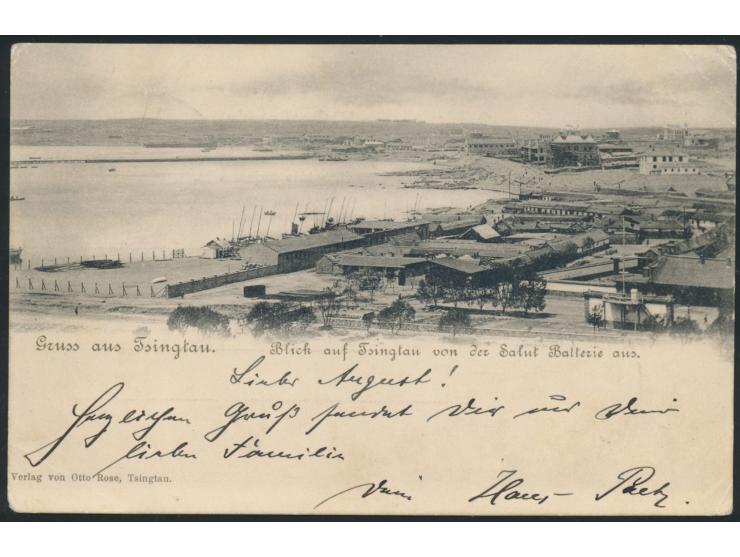 Gruss aus Tsingtau. Blick auf Tsingtau von der Salut Batterie aus.
Lieber August!
Herzlichen Gruß sendet Dir und Deiner
lieben Familie
Dein Hans
Verlag von Otto Rose, Tsingtau.